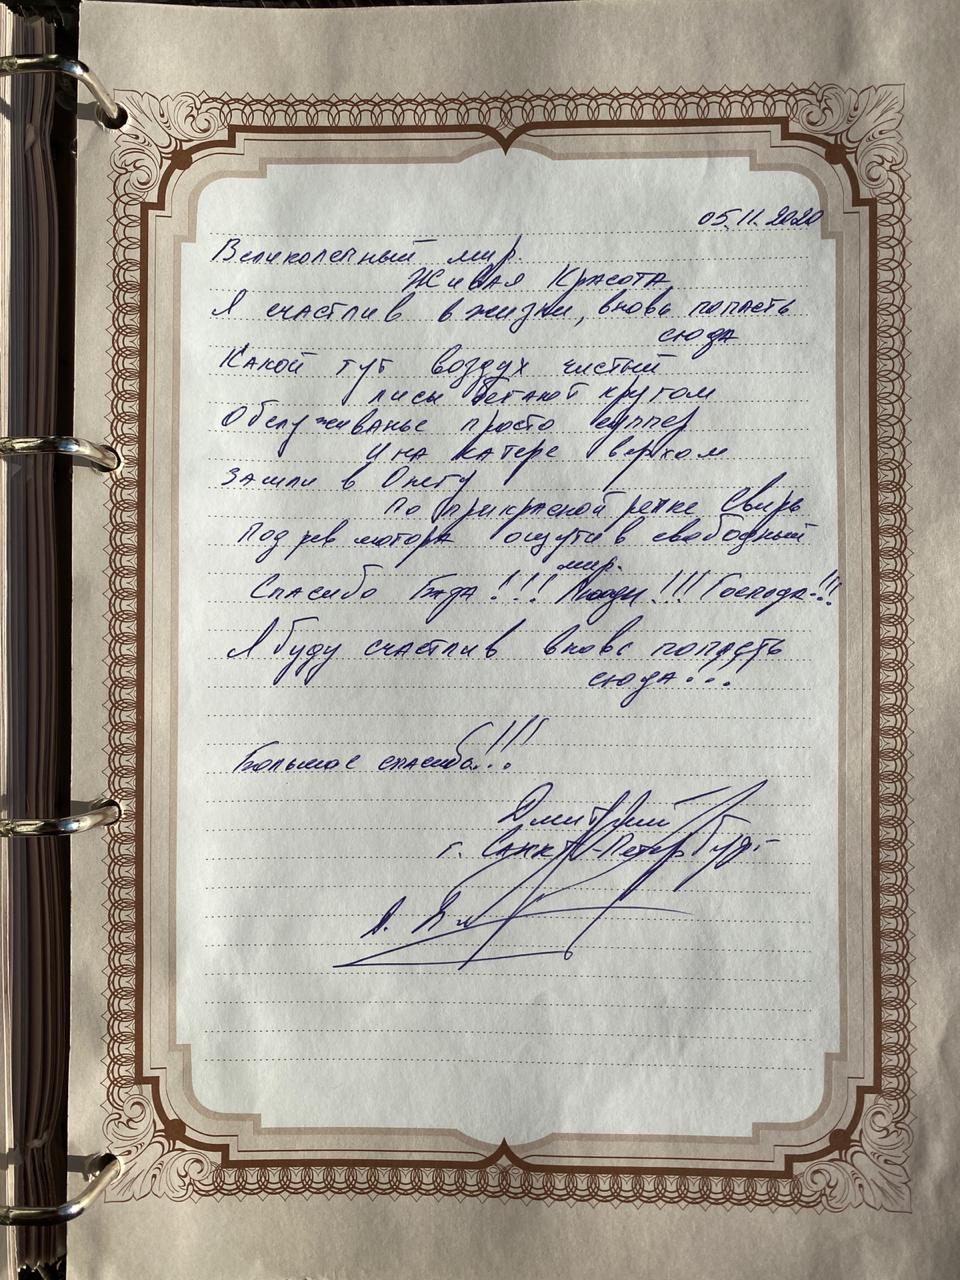 05.11.2020
Великолепный мир.
Живая Красота
Я счастлив в жизни, вновь попасть
сюда
Какой тут воздух чистый
лисы бегают кругом
Обслуживанье просто суппер
И на катере верхом
Зашли в Онегу
По прикрасной речке Свирь
Под рев мотора ощутив свободный
мир.
Спасибо !!! Люди !!! Господа !!!
Я буду счастлив вновь попасть
сюда...
Большое спасибо!!!
Дмитрий
г. Санкт-Петербург